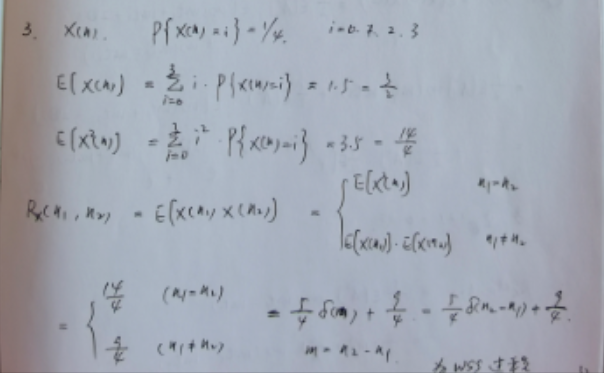 3. X(n). P{X(n)=i}=1/4. i=0.1.2.3
E[X(n)] = ∑_{i=0}^{3} i·P{X(n)=i} = 1.5 = 3/2
E[X²(n)] = ∑_{i=0}^{3} i²·P{X(n)=i} = 3.5 = 14/4
R_X(n₁,n₂) = E[X(n₁)X(n₂)] = { E[X²(n)] n₁=n₂
E[X(n₁)]·E[X(n₂)] n₁≠n₂
= { 14/4 (n₁=n₂) = 5/4 δ(m) + 9/4 = 5/4 δ(n₂-n₁) + 9/4.
9/4 (n₁≠n₂) m = n₂-n₁
为 WSS 过程